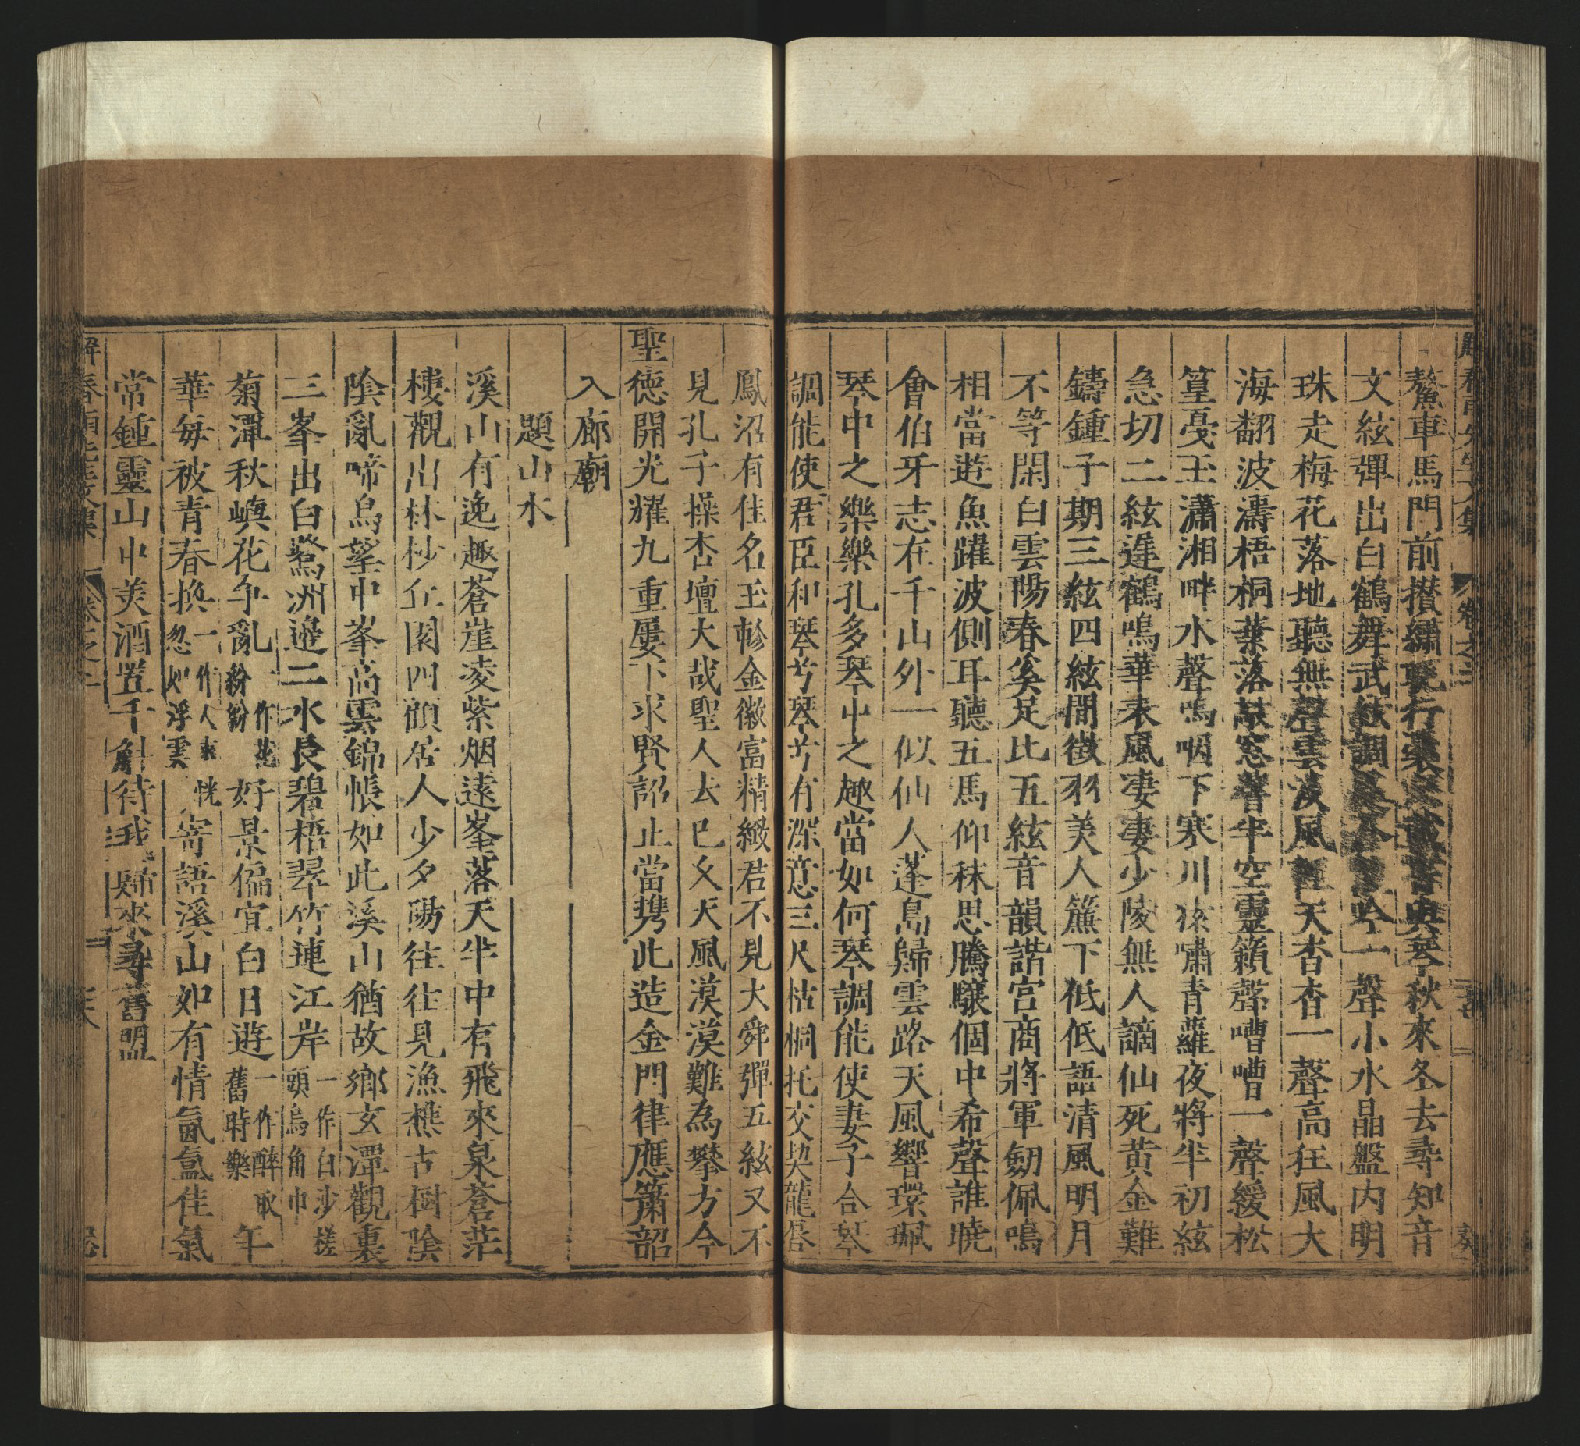 鰲車馬門前攅繡
琴秋來冬去尋知音
文絃彈出白鶴舞武絃調
吟一聲小水晶盤内明
珠走梅花落地聽無聲雲淡風輕天杳杳一聲高狂風大
海翻波濤梧桐葉落敲窓響半空靈籟聲嘈嘈一聲緩松
篁戛玉瀟湘畔水聲嗚咽下寒川猿嘯青蘿夜將半初絃
急切二絃遲鶴鳴華表風凄凄少陵無人謫仙死黄金難
鑄鍾子期三絃四絃間徴羽美人簾下低低語清風明月
不等閑白雲陽春奚足比五絃音韻諧宫商將軍劒佩鳴
相當遊魚躍波側耳聽五馬仰秣思騰驤個中希聲誰曉
會伯牙志在千山外一似仙人蓬島歸雲路天風響環珮
琴中之樂樂孔多琴中之趣當如何琴調能使妻子合琴
調能使君臣和琴兮琴兮有深意三尺枯桐托交契龍唇
鳳沼有佳名玉軫金徽富精緻君不見大舜彈五絃又不
見孔子操杏壇大哉聖人去已久天風漠漠難為攀方今
聖德開光耀九重屢下求賢詔止當携此造金門律應簫韶
入廊廟
題山水
溪山有逸趣蒼崖凌紫烟遠峯落天半中有飛來泉蒼茫
棲觀出林杪丘園四顧居人少夕陽往往見漁樵古樹陰
陰亂啼鳥望中峯高雲錦帳如此溪山猶故鄉玄潭觀裏
三峯出白鷺洲邊二水長碧梧翠竹連江岸一作白沙搓頭烏角巾
菊潭秋嶼花争亂一作花紛紛好景偏宜白日遊一作醉歌舊時樂午
華毎被青春換一作人來恍忽如浮雲寄語溪山如有情氤氳佳氣
常鍾靈山中美酒置千斛待我歸來尋舊盟